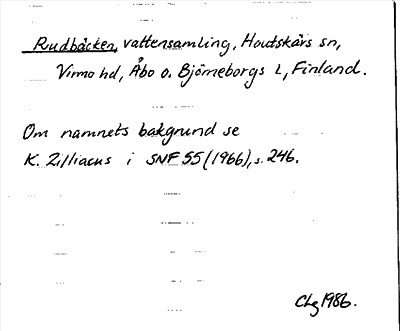 Rudbäcken, vattensamling, Houtskärs sn,
Virmo hd, Åbo o. Björneborgs l, Finland.
Om namnets bakgrund se
K. Zilliacus i SNF 55 (1966), s. 246.
CLg 1986.